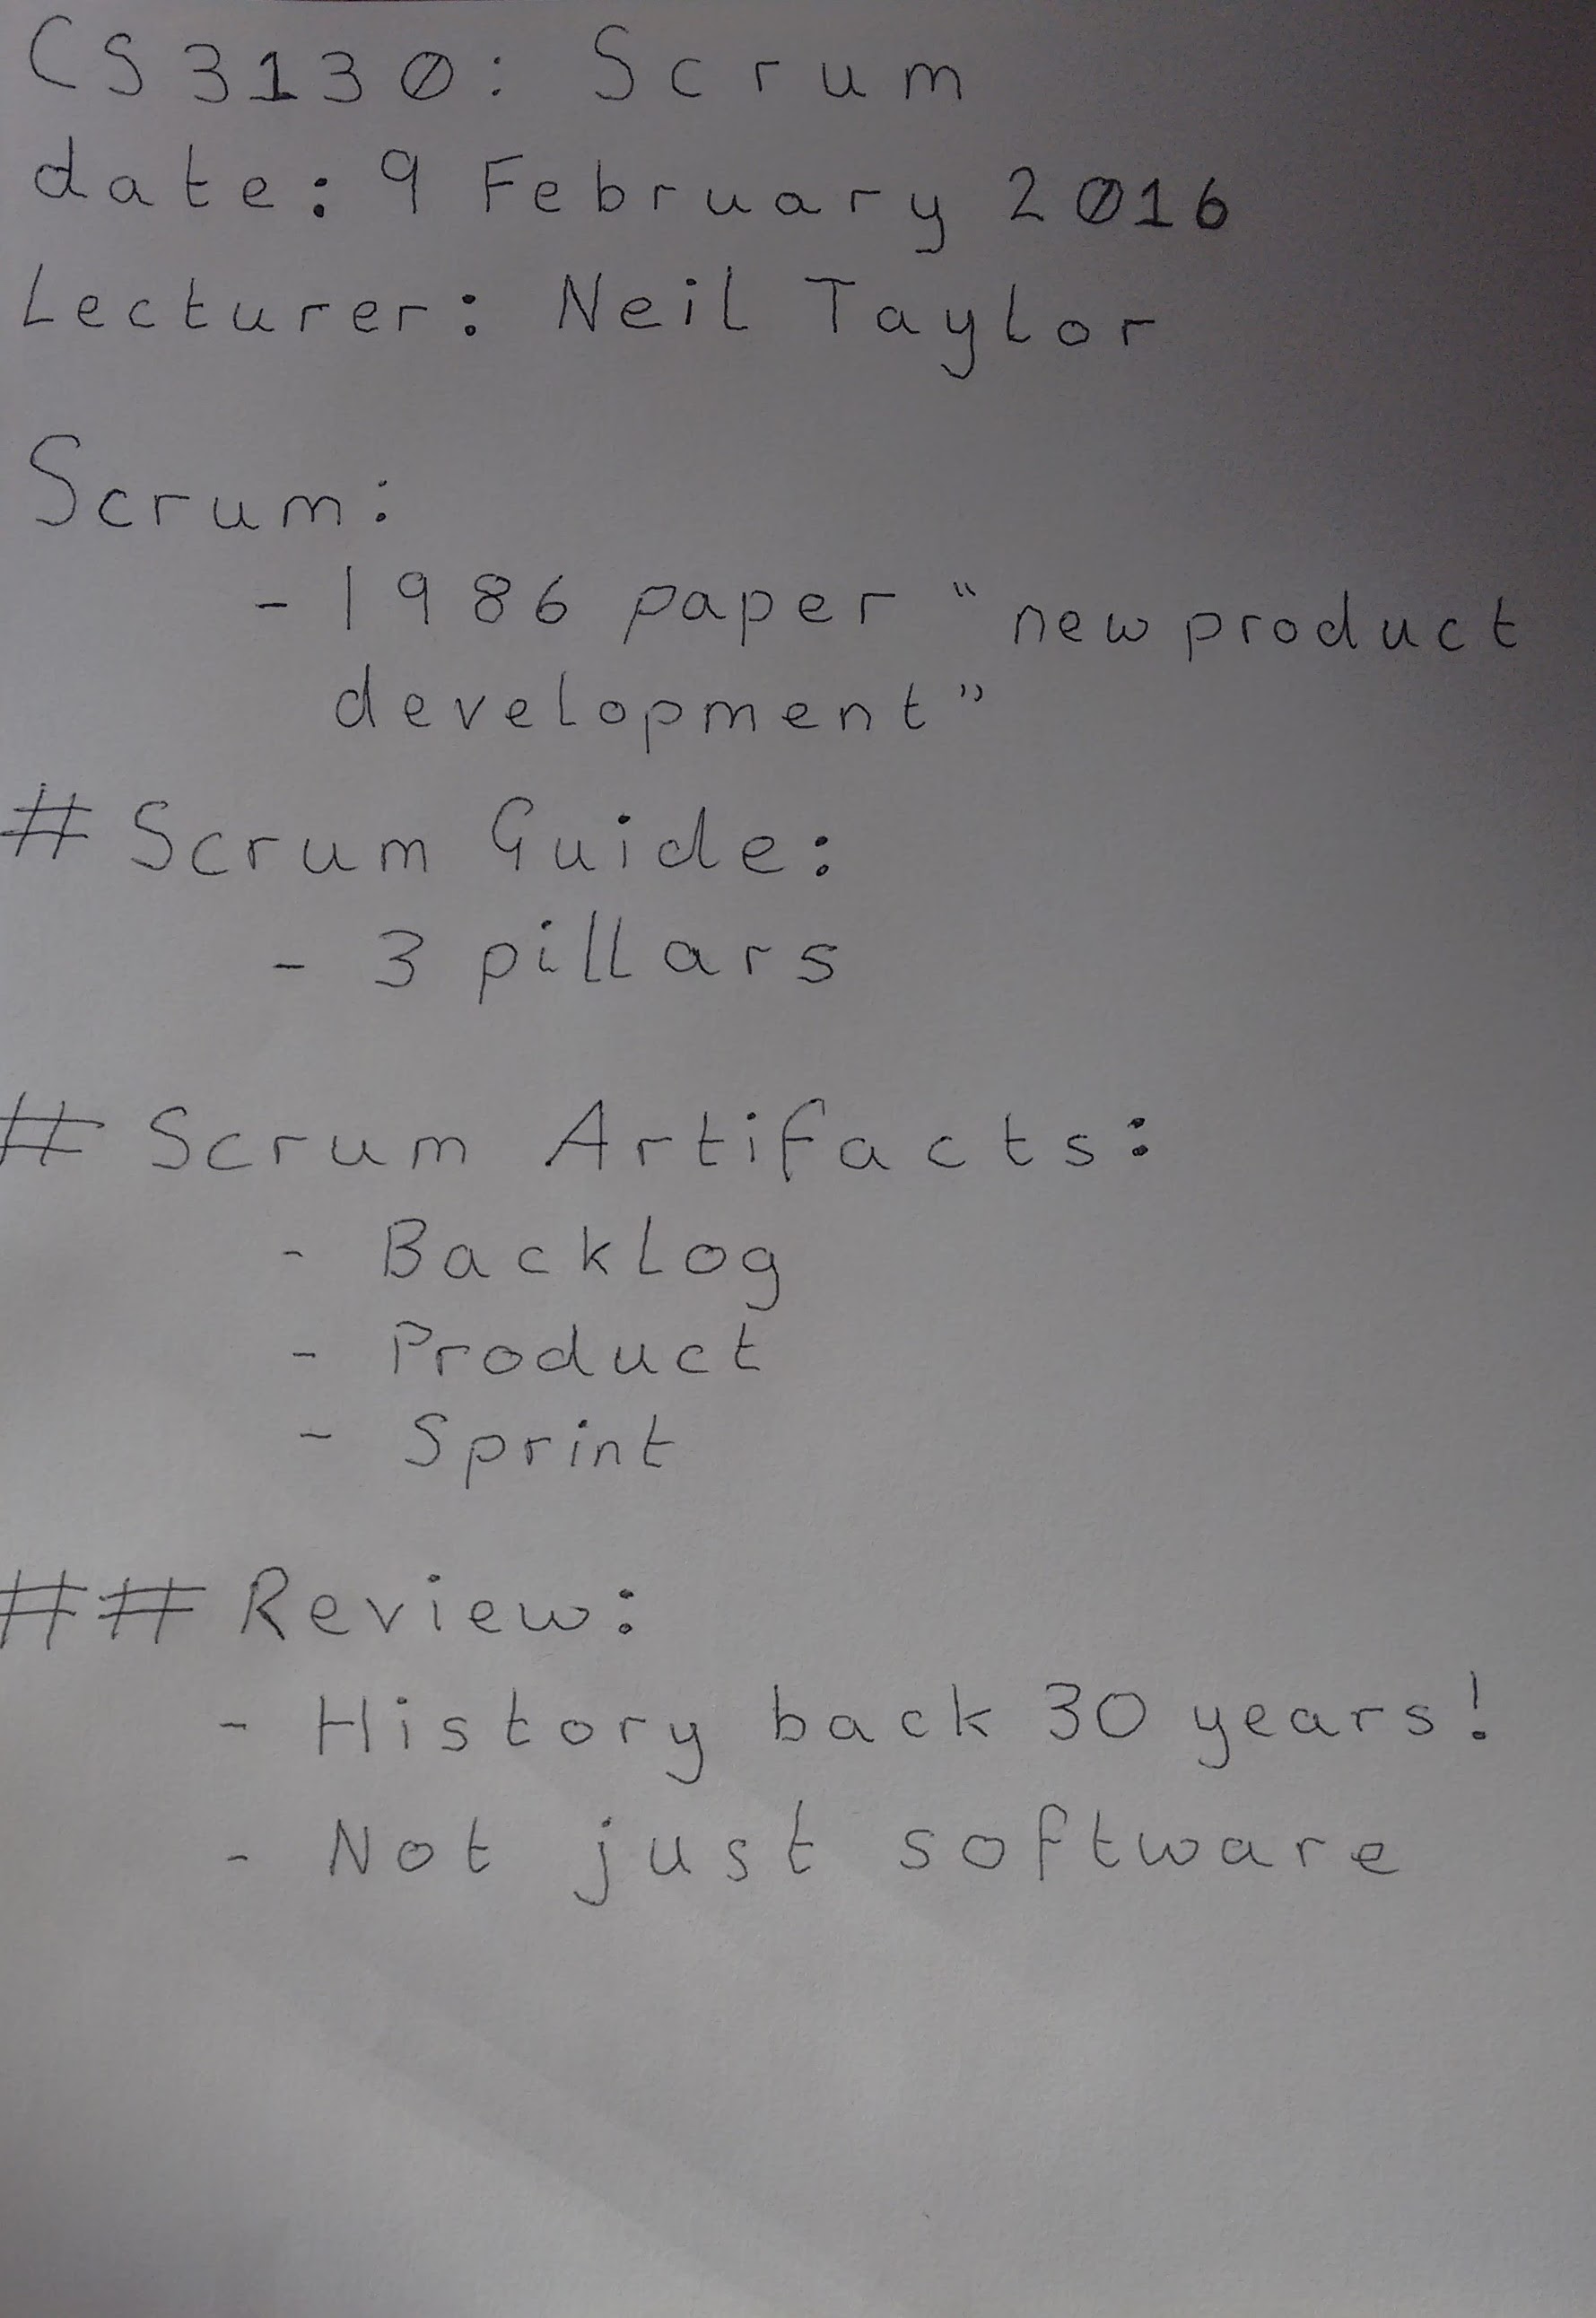 CS3130: Scrum
date: 9 February 2016
Lecturer: Neil Taylor
Scrum:
- 1986 paper “new product
development”
# Scrum Guide:
- 3 pillars
# Scrum Artifacts:
- Backlog
- Product
- Sprint
## Review:
- History back 30 years!
- Not just software